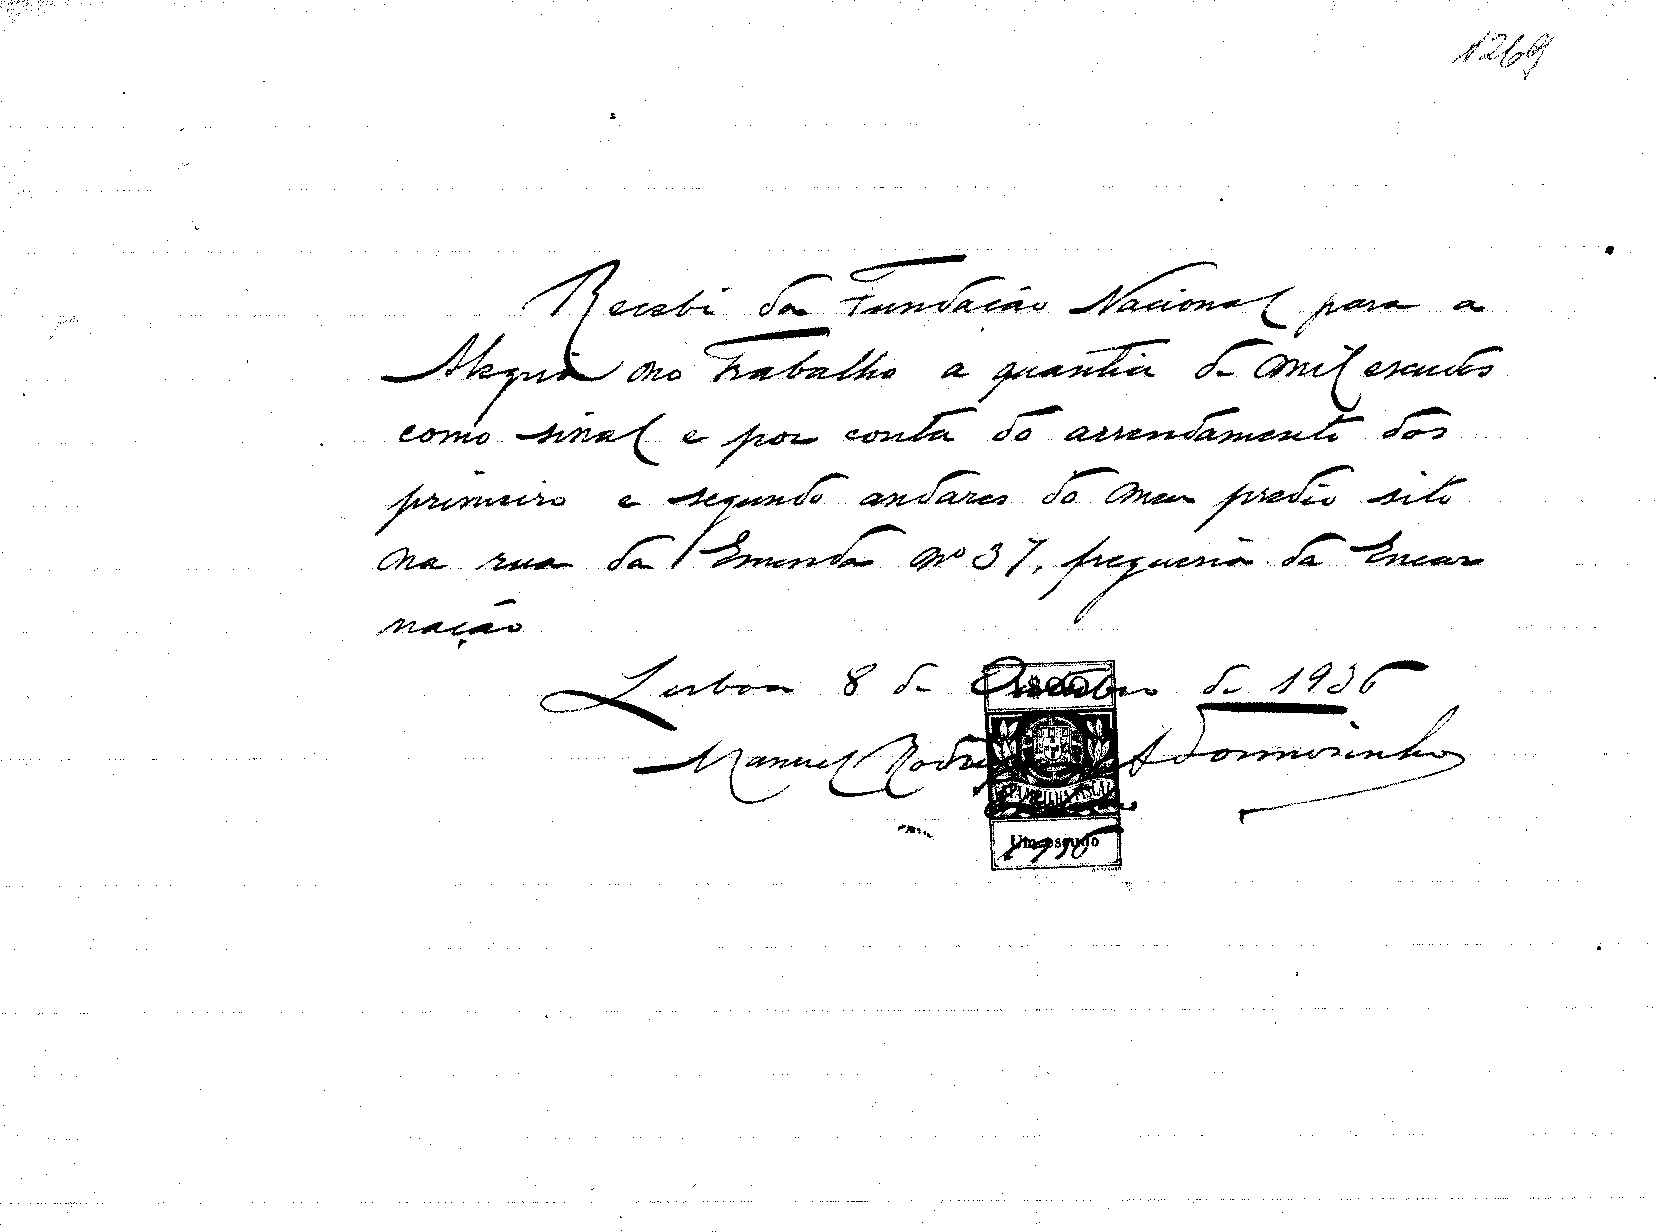 1269
Recebi da Fundação Nacional para a
Alegria no Trabalho a quantia de mil escudos
como sinal e por conta do arrendamento dos
primeiro e segundo andares do meu predio sito
na rua da Emenda nº 37, freguesia da Encar
nação
Lisboa 8 de Outubro de 1936
Manuel Rodrigues
ESTAMPILHA FISCAL
Um escudo